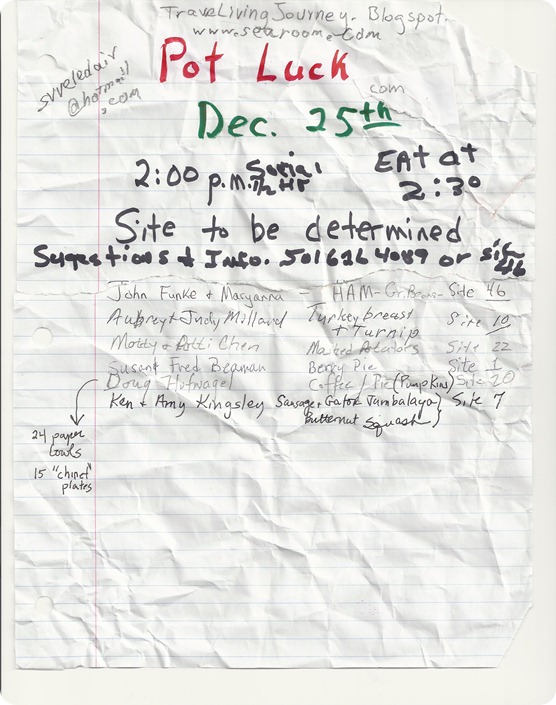 TraveLivingJourney. Blogspot.
com
www.searoom.com
svveledair
@hotmail
.com
Pot Luck
Dec. 25th
2:00 p.m. Social 1/2 HR
EAt at 2:30
Site to be determined
Sugestions & Info. 5016264089 or site 46
John Funke & Maryanna - HAM - Gr. Beans - Site 46
Aubrey & Judy Millard Turkey breast + Turnip Site 10
Patti Chen Mashed Potatoes Site 22
Susan & Fred Beaman Berry Pie Site 1
Doug Hufnagel Coffee / Pie (Pumpkins) Site 20
Ken & Amy Kingsley Sausage & Gator Jambalaya, Site 7
Butternut Squash)
24 paper
bowls
15 "chinet"
plates